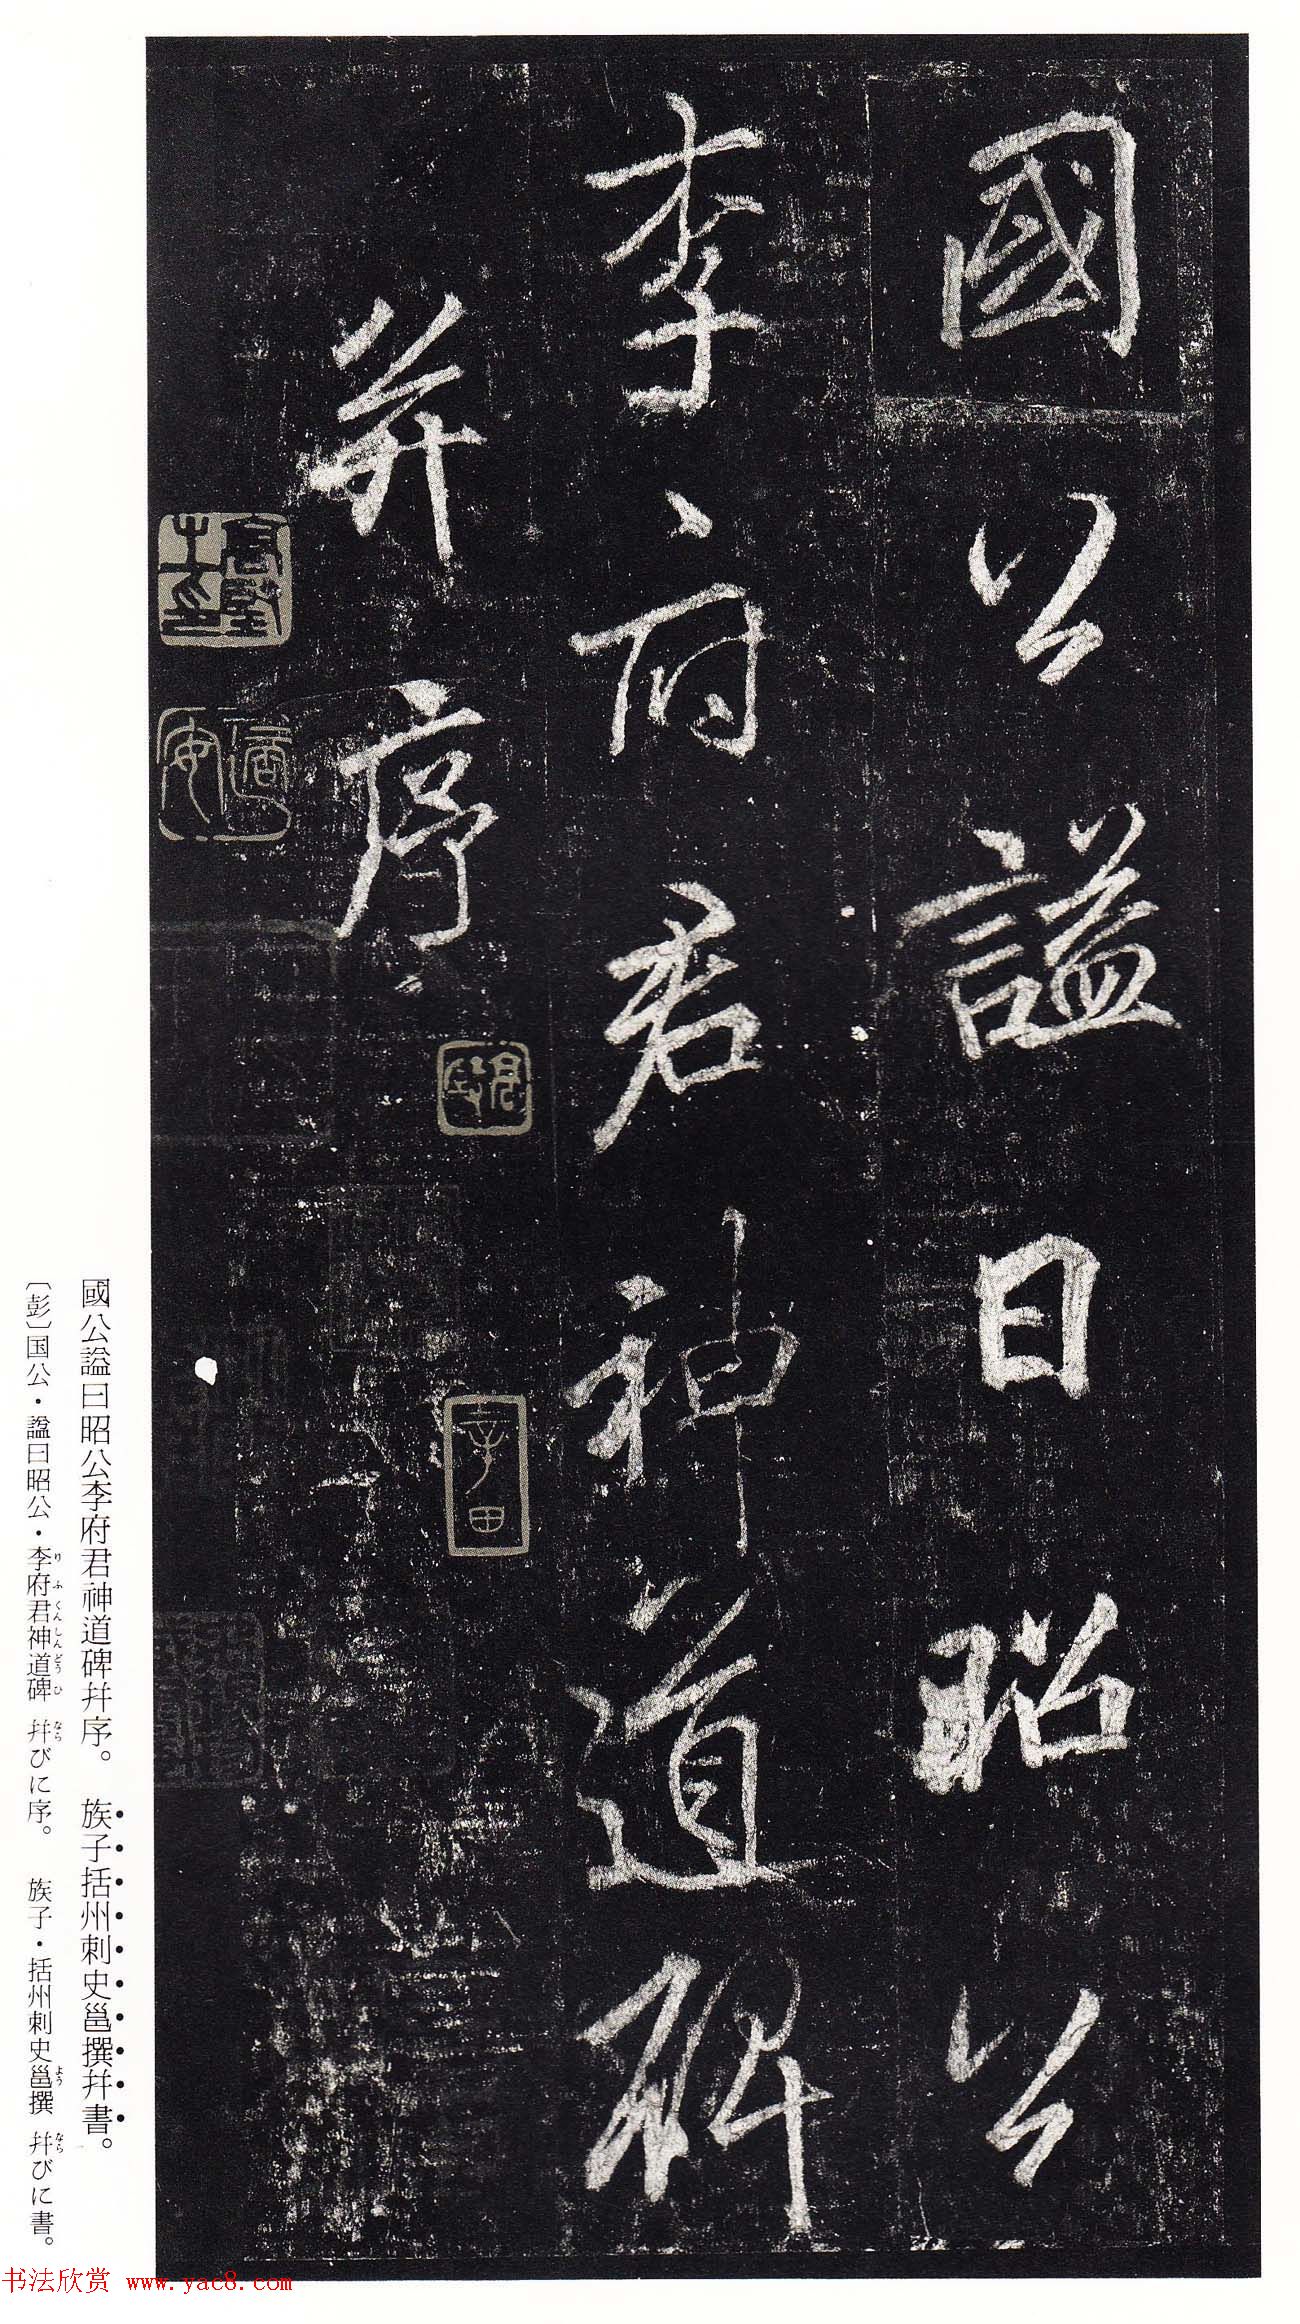 國公謚曰昭公
李府君神道碑
并序
李田
國公謚曰昭公李府君神道碑幷序。 族子括州刺史邕撰幷書。
〔彭〕国公・謚曰昭公・李府君神道碑 幷びに序。 族子・括州刺史邕撰 幷びに書。
りふくんしんどうひ
なら
よう
なら
书法欣赏 www.yac8.com